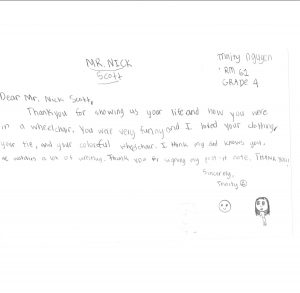 MR. NICK
Scott
Trinity Nguyen
RM 61
GRADE 4
Dear Mr. Nick Scott,
Thankyou for showing us your life and how you were
in a wheelchair. You were very funny and I loved your clothing,
your tie, and your colorful wheelchair. I think my dad knows you.
He watches a lot of wrestling. Thank you for signing my post it note. THANK YOU!
Sincerely,
Trinity